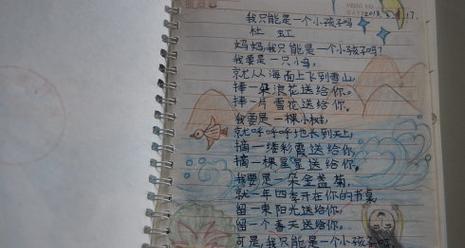 我只能是一个小孩子吗
杜 虹
妈妈,我只能是一个小孩子吗?
我要是一只小鸟,
就从海面上飞到雪山,
捧一朵浪花送给你,
捧一片雪花送给你。
我要是一棵小树,
就呼呼呼地长到天上,
摘一缕彩霞送给你,
摘一棵星星送给你。
我要是一朵金盏菊,
就一年四季开在你的书桌,
留一束阳光送给你,
留一个春天送给你。
可是,我只能是一个小孩子